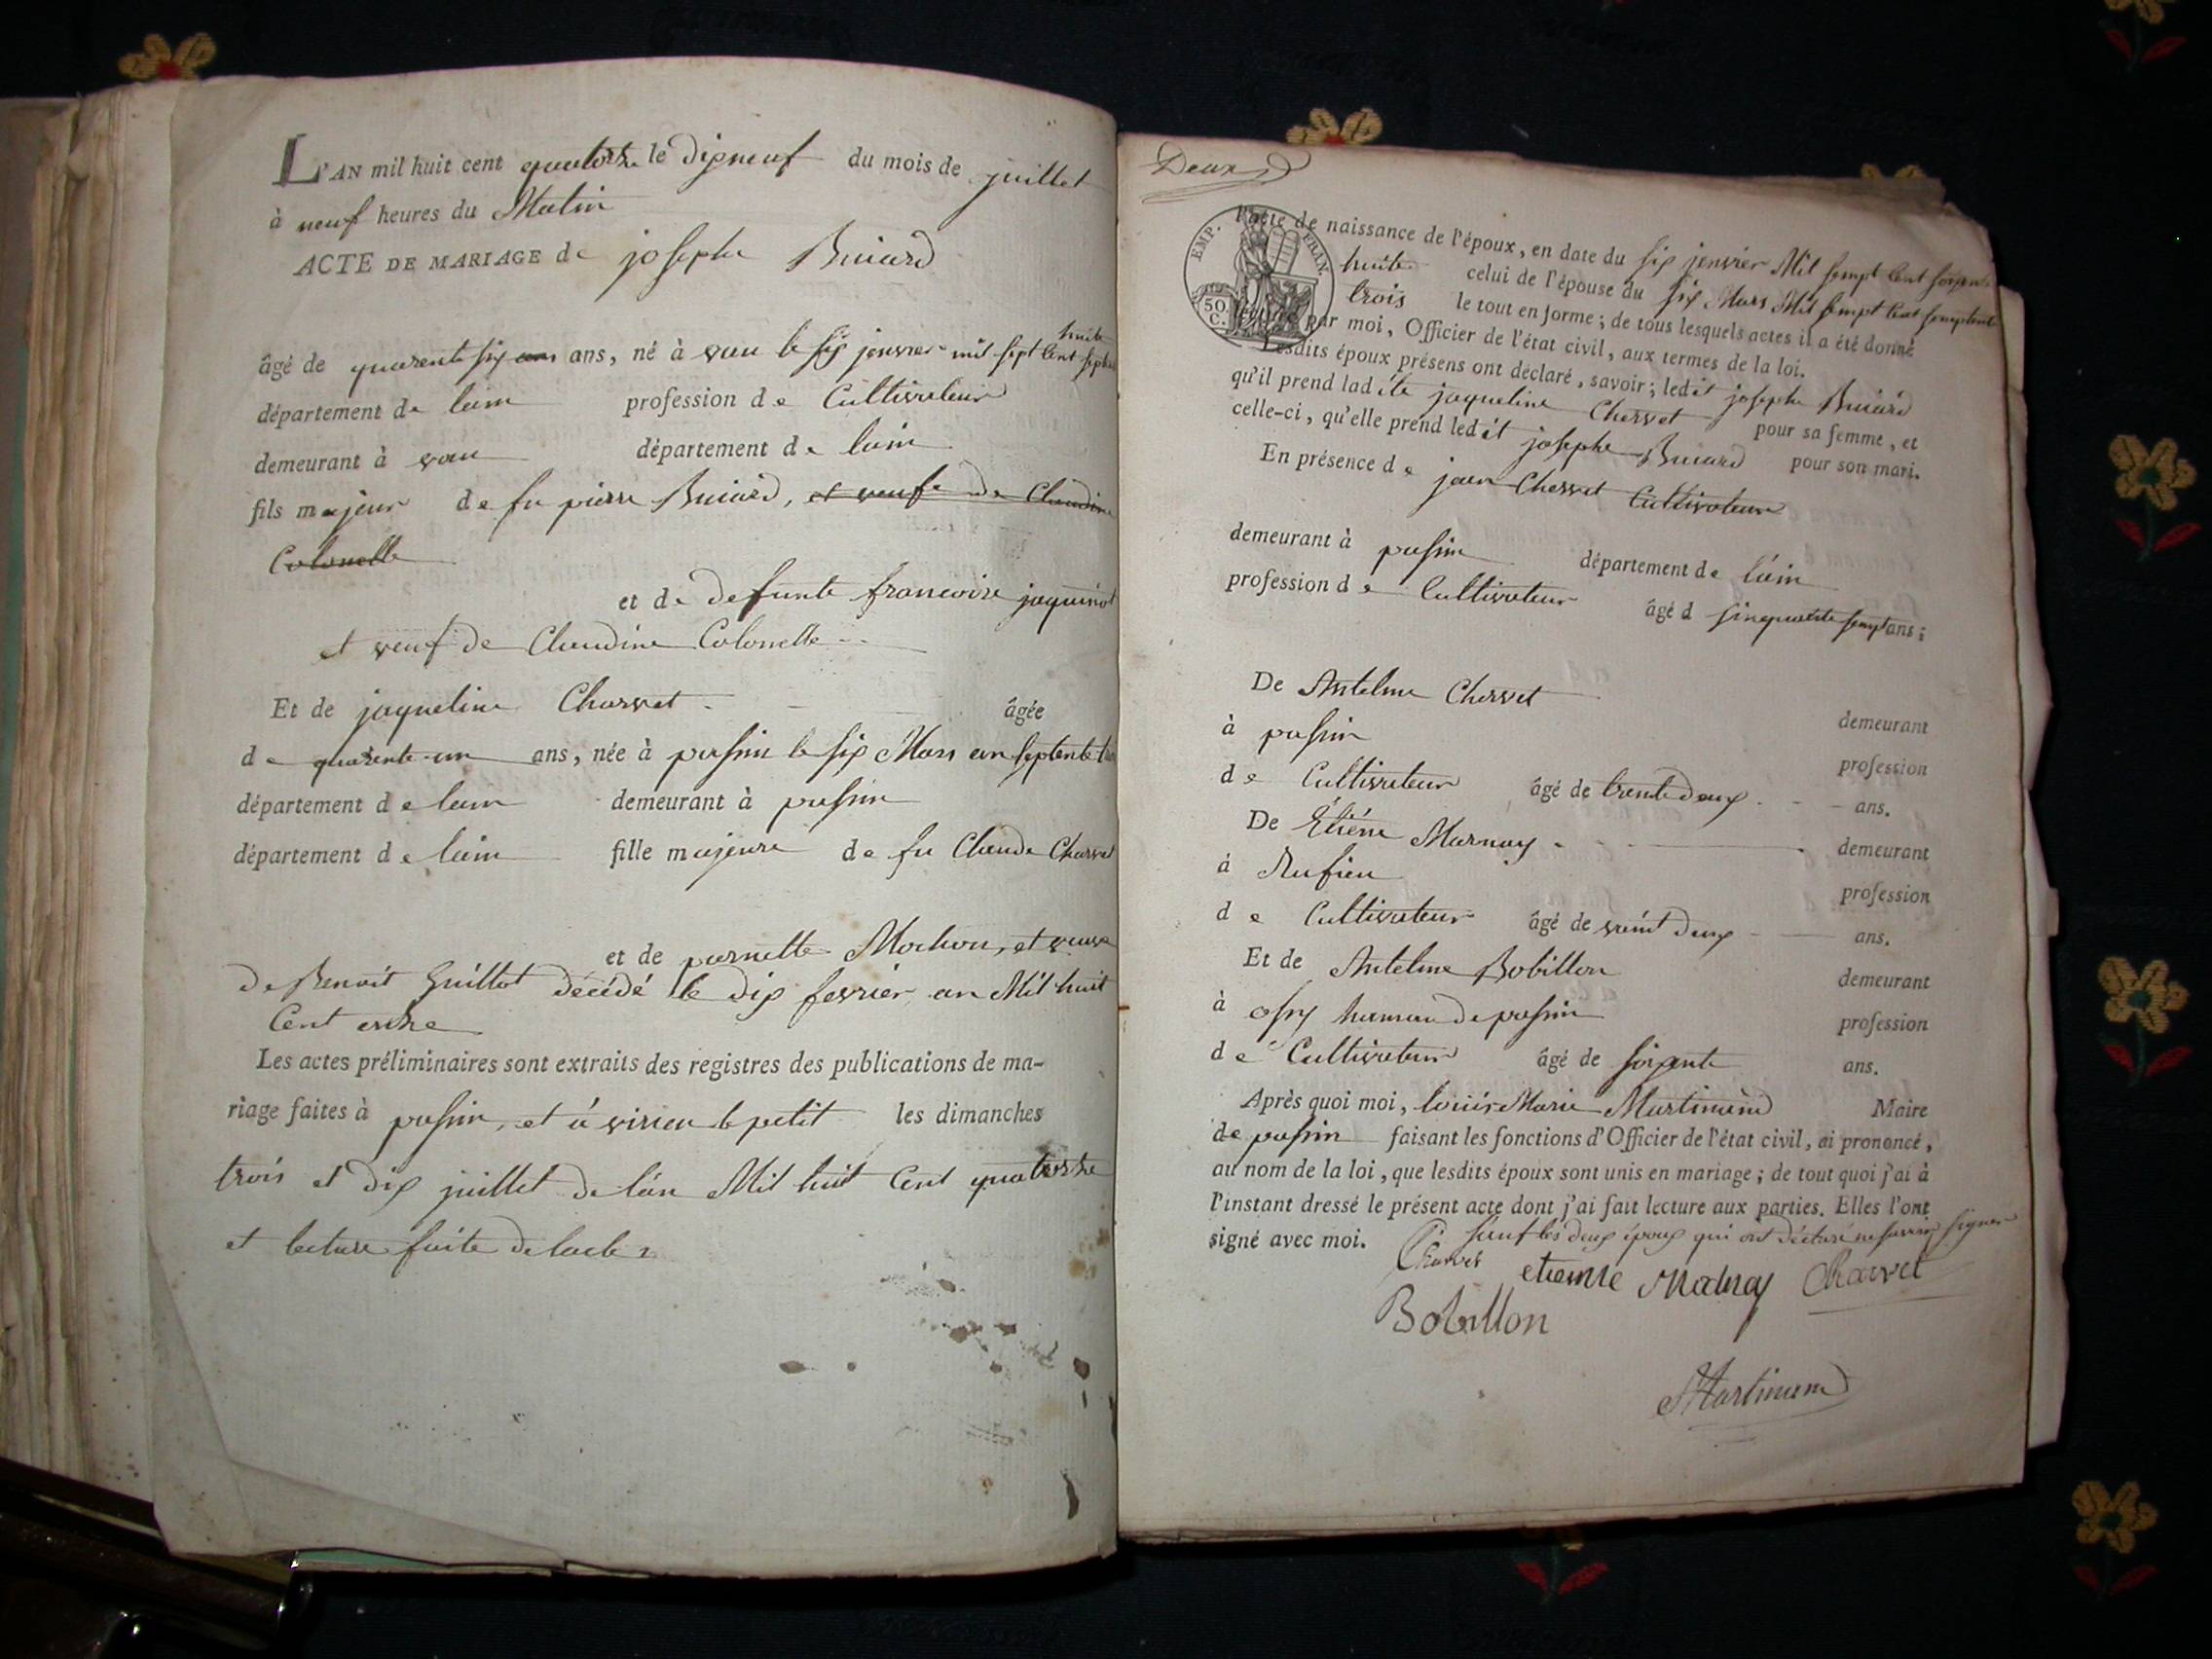 L'AN mil huit cent quatorze le dixneuf du mois de juillet
à neuf heures du Matin
ACTE DE MARIAGE de josephe Buiard
huite
âgé de quarente six ans ans, né à vau le six jenvier mil sept Cent
département de lain profession de Cultivateur
demeurant à vau département de lain
fils majeur de fu pierre Buiard, et veufe de Claudine
Colonelle
et de defunte francoise jaquinot
et veuf de Claudine Colonelle
Et de jaqueline Charvet âgée
de quarente-un ans, née à passin le six Mars an septente
département de lain demeurant à passin
département de lain fille majeure de fu Claude Charvet
et de pernette Mochon, et veuve
de Benoit Guillot décédé le dix fevrier an Mil huit
Cent onze
Les actes préliminaires sont extraits des registres des publications de ma-
riage faites à passin, et à virieu le petit les dimanches
trois et dix juillet de lán Mil huit Cent quatorze
et lecture faite de lacte
Deux
EMP. FRAN.
50 C.
l'acte de naissance de l'époux, en date du six jenvier Mil sempt Cent soixente
huite celui de l'épouse du six Mars Mil sempt Cent semptente
trois le tout en forme ; de tous lesquels actes il a été donné
par moi, Officier de l'état civil, aux termes de la loi.
Lesdits époux présens ont déclaré, savoir ; ledit josephe Buiard
qu'il prend ladite jaqueline Chervet pour sa femme, et
celle-ci, qu'elle prend ledit josephe Buiard pour son mari.
En présence de jean Chervet Cultivateur
demeurant à passin département de láin
profession de Cultivateur âgé d sinquante sempt ans ;
De Antelme Chervet demeurant
à passin profession
de Cultivateur âgé de trente deux ans.
De Étiéne Marnay demeurant
à Rufieu profession
de Cultivateur âgé de vaint deux ans.
Et de Antelme Bobillon demeurant
à ossy hameau de passin profession
de Cultivateur âgé de soixante ans.
Après quoi moi, louis Marie Martinand Maire
de passin faisant les fonctions d'Officier de l'état civil, ai prononcé,
au nom de la loi, que lesdits époux sont unis en mariage ; de tout quoi j'ai à
l'instant dressé le présent acte dont j'ai fait lecture aux parties. Elles l'ont
signé avec moi. sauf les deux époux qui ont déclaré ne savoir signer
Charvet etienne Marnay Charvet
Bobillon
Martinand